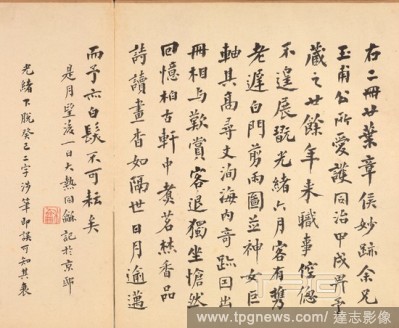 右二冊廿葉章侯妙跡余兄
玉甫公所愛護同治甲戌畀予
藏之廿餘年來職事倥傯
不遑展翫光緒六月客有攜
老遲白門剪兩圖並神女巨
軸其高尋丈洵海內奇跡因出
冊相与歎賞客退獨坐愴然
回憶柏古軒中煮茗焚香品
詩讀畫杳如隔世日月逾邁
而予亦白髮不可耘矣
是月望後一日大熱因解記於京邸
光緒下脫癸巳二字涉筆即誤可知其衰
www.tpgnews.com
達志影像